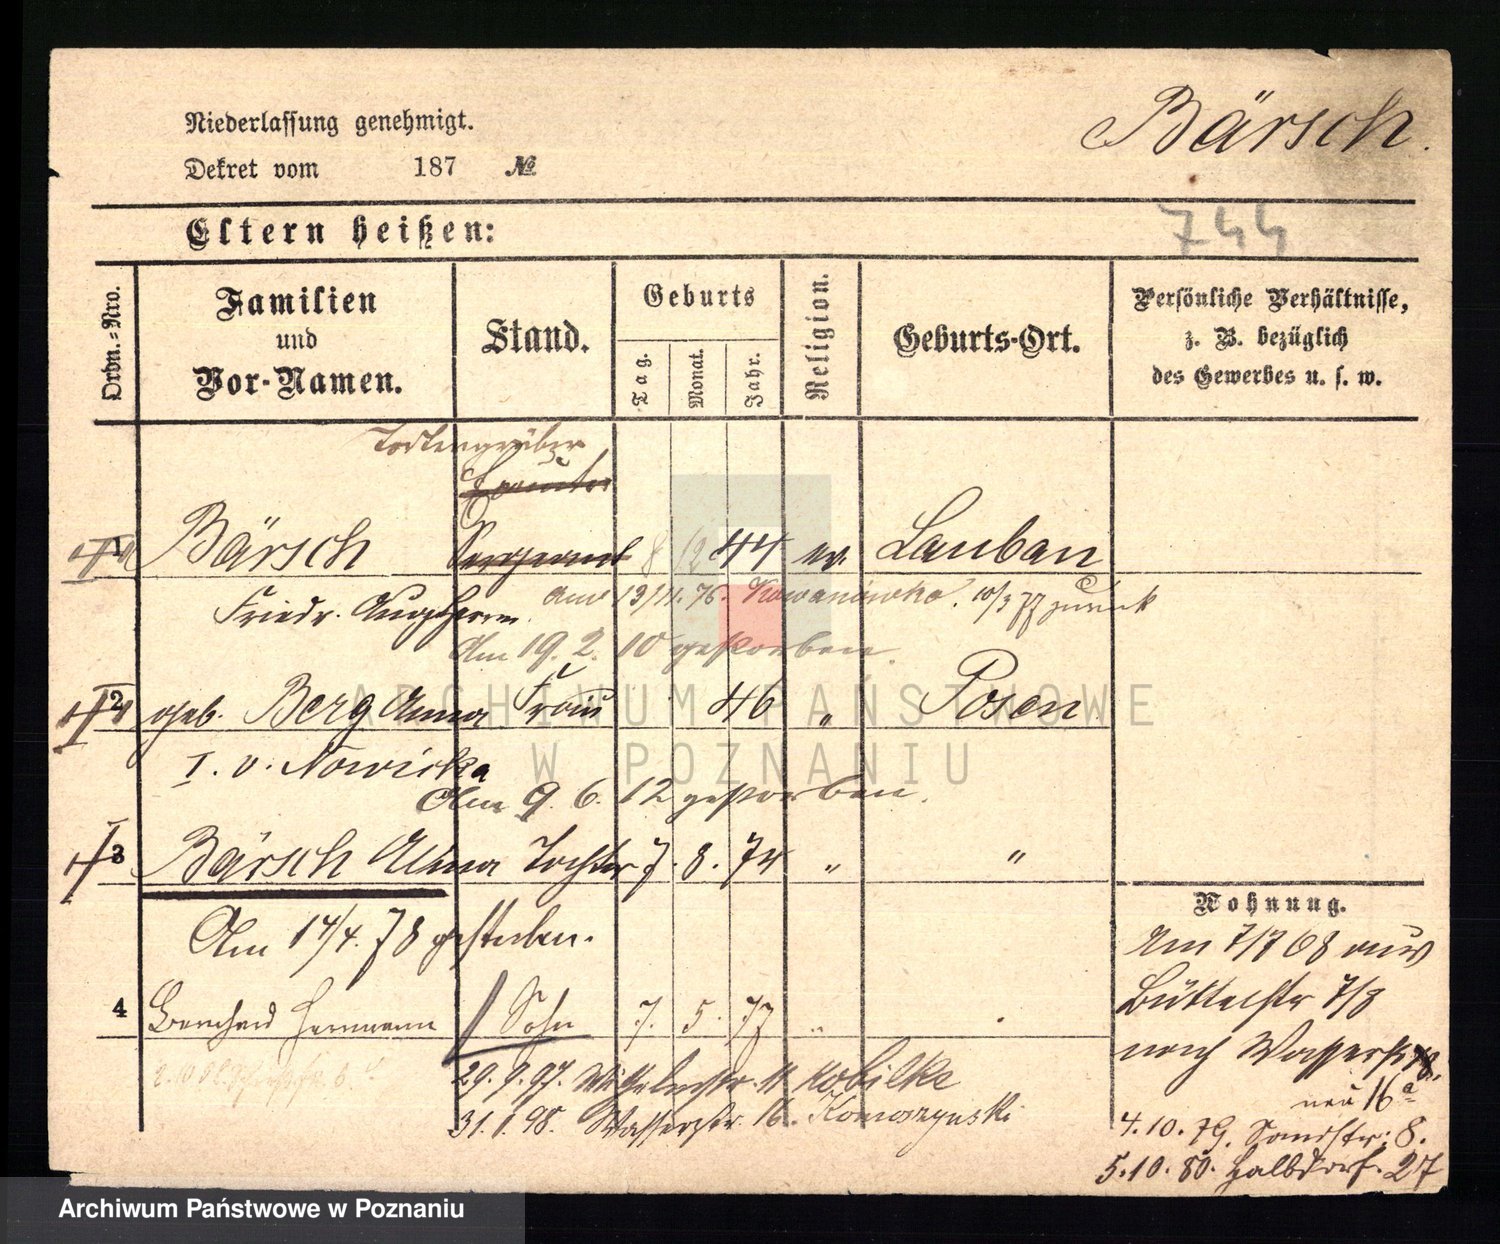 Bärsch.
Niederlassung genehmigt.
Dekret vom 187 №
744
Eltern heißen:
Ordn.-Nro.
Familien
und
Vor-Namen.
Stand.
Geburts
Tag.
Monat.
Jahr.
Religion.
Geburts-Ort.
Persönliche Verhältnisse,
z. B. bezüglich
des Gewerbes u. s. w.
Todtengräber
1 Bärsch Sergeant 8 12 44 ev. Lauban
Friedr. Aug. Herrm.
13/11. 76. 10/3 77 zurück
Am 19. 2. 10 gestorben.
2 geb. Berg Anna Frau 46 " Posen
I. v. Nowicka
Am 9. 6. 12 gestorben.
3 Bärsch Alma Tochter 7. 8. 74 " "
Am 14/4. 78 gestorben.
4 Hermann Sohn 7. 5. 77 "
29. 9. 97. 11 Kobilke
31. 1. 98. Wasserstr. 16.
Wohnung.
Am 7/7 68 aus
7/8
nach Wasserstr
neu 16a
4. 10. 79. Sandstr. 8.
5. 10. 80. Halbdorf. 27
ARCHIWUM PAŃSTWOWE
W POZNANIU
Archiwum Państwowe w Poznaniu